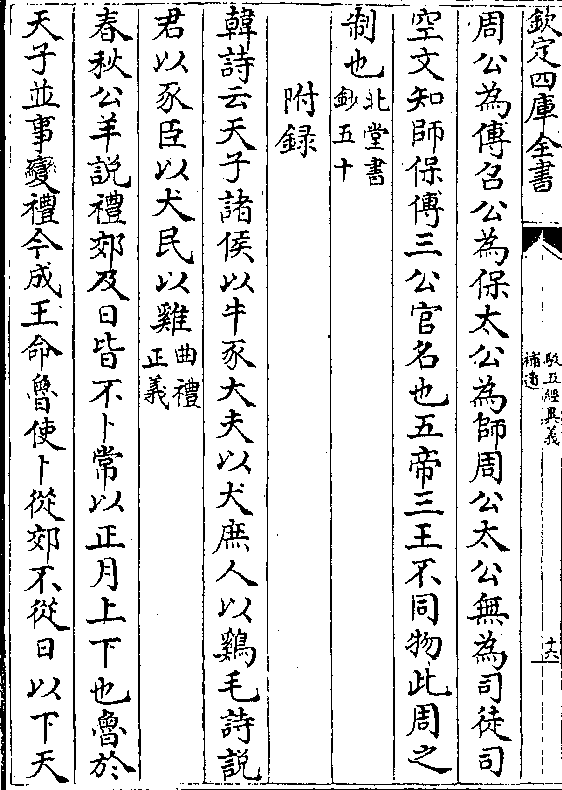 欽定四庫全書
駁五經異義
補遺
十六
周公為傅召公為保太公為師周公太公無為司徒司
空文知師保傅三公官名也五帝三王不同物此周之
制也北堂書
鈔五十
附録
韓詩云天子諸侯以牛豕大夫以犬庶人以鷄毛詩説
君以豕臣以犬民以雞曲禮
正義
春秋公羊説禮郊及日皆不卜常以正月上下也魯於
天子並事變禮今成王命魯使卜從郊不從日以下天